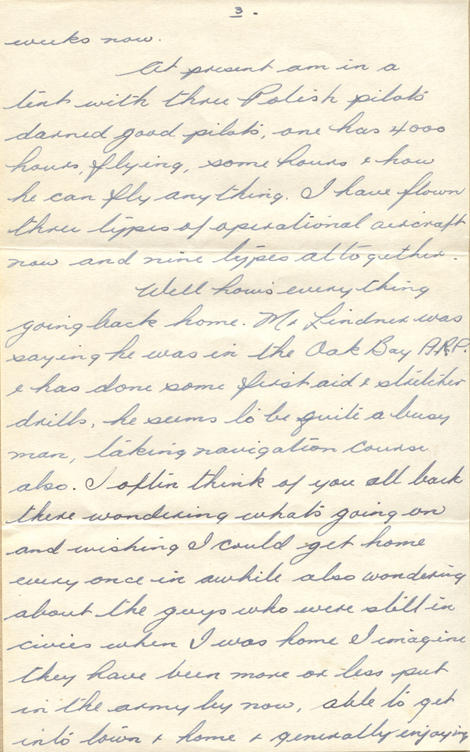 3.
weeks now.
At present am in a
tent with three Polish pilots
darned good pilots, one has 4000
hours, flying, some hours & how
he can fly anything. I have flown
three types of operational aircraft
now and nine types altogether.
Well how's everything
going back home. Mr Lindner was
saying he was in the Oak Bay A.R.P.
& has done some first aid & stretcher
drills, he seems to be quite a busy
man, taking navigation course
also. I often think of you all back
there wondering what's going on
and wishing I could get home
every once in awhile also wondering
about the guys who were still in
civies when I was home I imagine
they have been more or less put
in the army by now, able to get
into town & home & generally enjoying